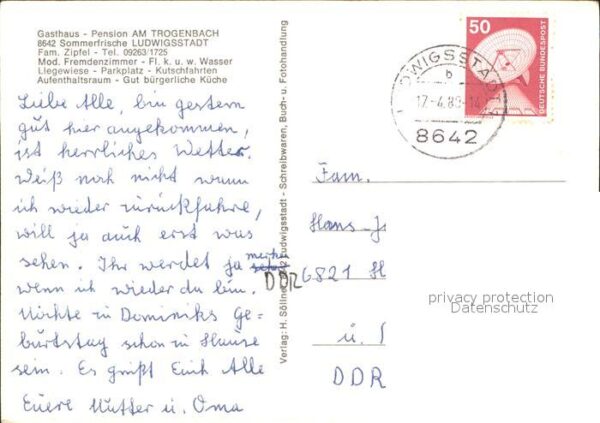 Gasthaus - Pension AM TROGENBACH
8642 Sommerfrische LUDWIGSSTADT
Fam. Zipfel - Tel. 09263/1725
Mod. Fremdenzimmer - Fl. k. u. w. Wasser
Liegewiese - Parkplatz - Kutschfahrten
Aufenthaltsraum - Gut bürgerliche Küche
Liebe Alle, bin gestern
gut hier angekommen,
ist herrliches Wetter.
Weiß noch nicht wann
ich wieder zurückfahre,
will ja auch erst was
sehen. Ihr werdet ja merken
wenn ich wieder da bin.
Möchte in Dominiks Ge=
burtstag schon in Hause
sein. Es grüßt Euch Alle
Euere Mutter u. Oma
Verlag: H. Söllner, Ludwigsstadt - Schreibwaren, Buch- u. Fotohandlung
50
DEUTSCHE BUNDESPOST
LUDWIGSSTADT
b
17.-4.80-14
8642
Fam.
Hans-J
DDR 6821 H
ü. S
DDR
privacy protection
Datenschutz